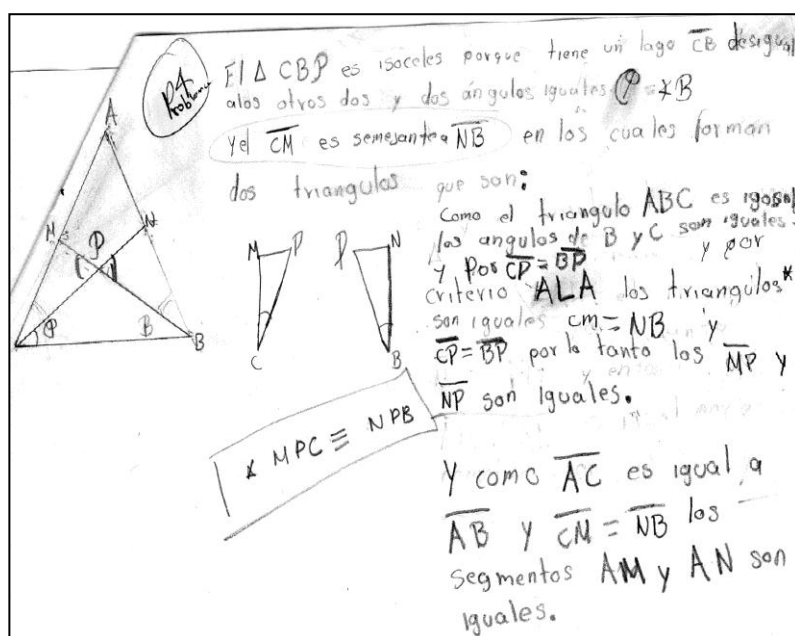 P4
Problema
El Δ CBP es isoceles porque tiene un lago CB desigual
alos otros dos y dos ángulos iguales = ∡B
yel CM es semejante a NB en los cuales forman
dos triangulos que son:
A
M
N
P
φ
B
B
M
P
C
P
N
B
Como el triangulo ABC es
los angulos de B y C son iguales
y Por CP = BP y por
criterio ALA los triangulos*
son iguales cm = NB y
CP = BP por lo tanto los MP y
NP son iguales.
* MPC ≡ NPB
Y como AC es igual a
AB y CM = NB los
segmentos AM y AN son
iguales.